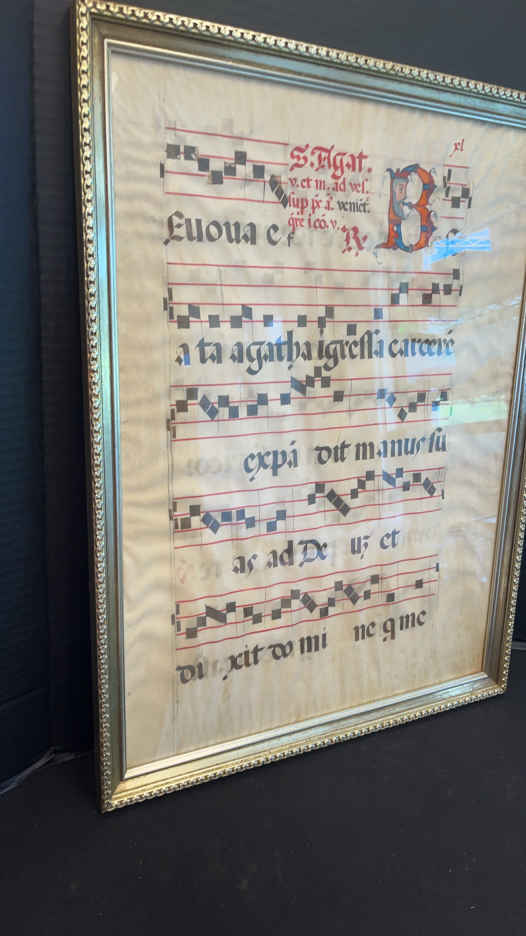 xl
S. Agat.
v. et m. ad ves.
sup ps a. veniet.
Euoua e R B e
a ta agatha igressa carcere
expa dit manus su
as ad De uz et
di xit do mi ne q me